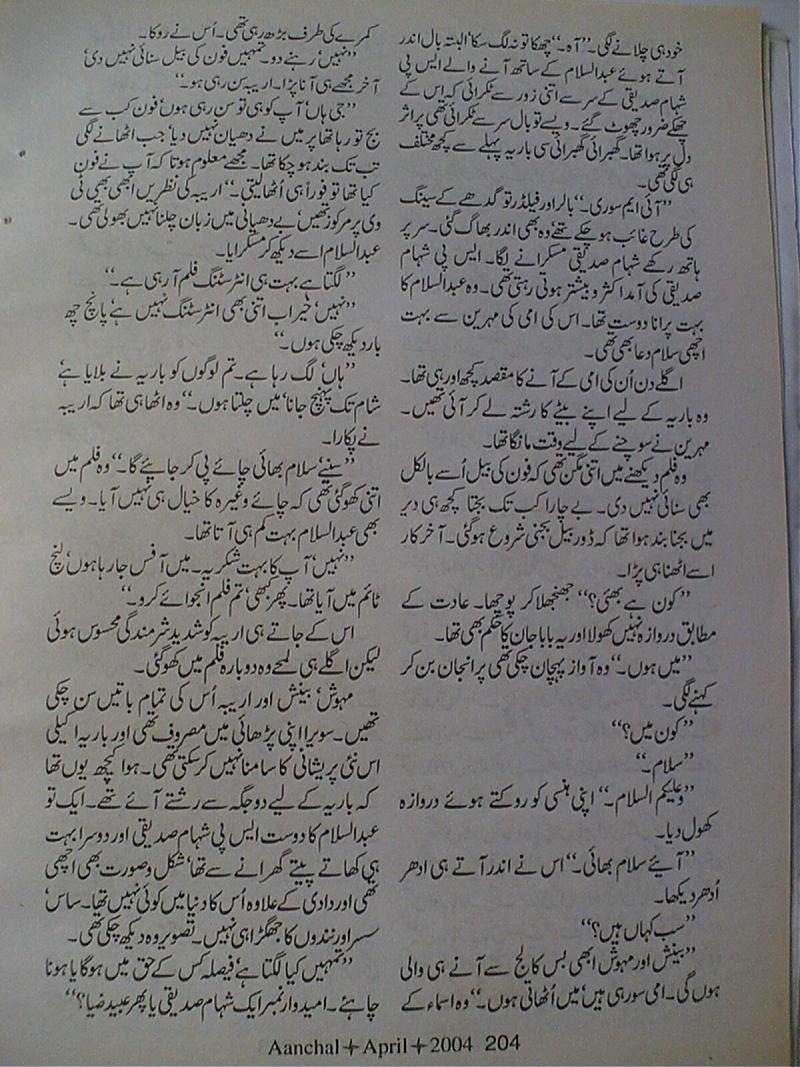 خود ہی چلانے لگی۔ ”آہ۔“ چھکا تو نہ لگ سکا‘ البتہ بال اندر
آتے ہوئے عبدالسلام کے ساتھ آنے والے ایس پی
شہام صدیقی کے سر سے اتنی زور سے ٹکرائی کہ اس کے
چھکے ضرور چھوٹ گئے۔ ویسے تو بال سر سے ٹکرائی تھی پر اثر
دل پر ہوا تھا۔ گھبرائی گھبرائی سی باریہ پہلے سے کچھ مختلف
ہی لگی تھی۔
”آئی ایم سوری۔“ بالر اور فیلڈر تو گدھے کے سینگ
کی طرح غائب ہو چکے تھے‘ وہ بھی اندر بھاگ گئی۔ سر پر
ہاتھ رکھے شہام صدیقی مسکرانے لگا۔ ایس پی شہام
صدیقی کی آمد اکثر و بیشتر ہوتی رہتی تھی۔ وہ عبدالسلام کا
بہت پرانا دوست تھا۔ اس کی امی کی مہرین سے بہت
اچھی سلام دعا بھی تھی۔
اگلے دن اُن کی امی کے آنے کا مقصد کچھ اور ہی تھا۔
وہ باریہ کے لیے اپنے بیٹے کا رشتہ لے کر آئی تھیں۔
مہرین نے سوچنے کے لیے وقت مانگا تھا۔
وہ فلم دیکھنے میں اتنی مگن تھی کہ فون کی بیل اُسے بالکل
بھی سنائی نہیں دی۔ بے چارا کب تک بجتا کچھ ہی دیر
میں بجنا بند ہوا تھا کہ ڈور بیل بجنی شروع ہو گئی۔ آخر کار
اسے اٹھنا ہی پڑا۔
”کون ہے بھئی؟“ جھنجھلا کر پوچھا۔ عادت کے
مطابق دروازہ نہیں کھولا اور یہ بابا جان کا حکم بھی تھا۔
”میں ہوں۔“ وہ آواز پہچان چکی تھی پر انجان بن کر
کہنے لگی۔
”کون میں؟“
”سلام۔“
”وعلیکم السلام۔“ اپنی ہنسی کو روکتے ہوئے دروازہ
کھول دیا۔
”آیئے سلام بھائی۔“ اس نے اندر آتے ہی ادھر
اُدھر دیکھا۔
”سب کہاں ہیں؟“
”بینش اور مہوش ابھی بس کالج سے آنے ہی والی
ہوں گی۔ امی سو رہی ہیں‘ میں اُٹھاتی ہوں۔“ وہ اسماء کے
کمرے کی طرف بڑھ رہی تھی۔ اُس نے روکا۔
”نہیں‘ رہنے دو۔ تمہیں فون کی بیل سنائی نہیں دی‘
آخر مجھے ہی آنا پڑا۔ اریبہ سن رہی ہو۔“
”جی ہاں‘ آپ کو ہی تو سن رہی ہوں‘ فون کب سے
بج تو رہا تھا پر میں نے دھیان نہیں دیا‘ جب اٹھانے لگی
تب تک بند ہو چکا تھا۔ مجھے معلوم ہوتا کہ آپ نے فون
کیا تھا تو فوراً ہی اُٹھا لیتی۔“ اریبہ کی نظریں ابھی بھی ٹی
وی پر مرکوز تھیں‘ بے دھیانی میں زبان چلنا نہیں بھولی تھی۔
عبدالسلام اسے دیکھ کر مسکرایا۔
”لگتا ہے بہت ہی انٹرسٹنگ فلم آ رہی ہے۔“
”نہیں‘ خیر اب اتنی بھی انٹرسٹنگ نہیں ہے‘ پانچ چھ
بار دیکھ چکی ہوں۔“
”ہاں‘ لگ رہا ہے۔ تم لوگوں کو باریہ نے بلایا ہے‘
شام تک پہنچ جانا‘ میں چلتا ہوں۔“ وہ اٹھا ہی تھا کہ اریبہ
نے پکارا۔
”سنیے‘ سلام بھائی چائے پی کر جایئے گا۔“ وہ فلم میں
اتنی کھو گئی تھی کہ چائے وغیرہ کا خیال ہی نہیں آیا۔ ویسے
بھی عبدالسلام بہت کم ہی آتا تھا۔
”نہیں‘ آپ کا بہت شکریہ۔ میں آفس جا رہا ہوں‘ لنچ
ٹائم میں آیا تھا۔ پھر کبھی‘ تم فلم انجوائے کرو۔“
اس کے جاتے ہی اریبہ کو شدید شرمندگی محسوس ہوئی
لیکن اگلے ہی لمحے وہ دوبارہ فلم میں کھو گئی۔
مہوش‘ بینش اور اریبہ اُس کی تمام باتیں سن چکی
تھیں۔ سویرا اپنی پڑھائی میں مصروف تھی اور باریہ اکیلی
اس نئی پریشانی کا سامنا نہیں کر سکتی تھی۔ ہوا کچھ یوں تھا
کہ باریہ کے لیے دو جگہ سے رشتے آئے تھے۔ ایک تو
عبدالسلام کا دوست ایس پی شہام صدیقی اور دوسرا بہت
ہی کھاتے پیتے گھرانے سے تھا‘ شکل و صورت بھی اچھی
تھی اور دادی کے علاوہ اُس کا دنیا میں کوئی نہیں تھا۔ ساس‘
سسر اور نندوں کا جھگڑا ہی نہیں۔ تصویر وہ دیکھ چکی تھی۔
”تمہیں کیا لگتا ہے‘ فیصلہ کس کے حق میں ہو گا یا ہونا
چاہئے۔ امیدوار نمبر ایک شہام صدیقی یا پھر عبید ضیا؟“
Aanchal✦April✦2004 204